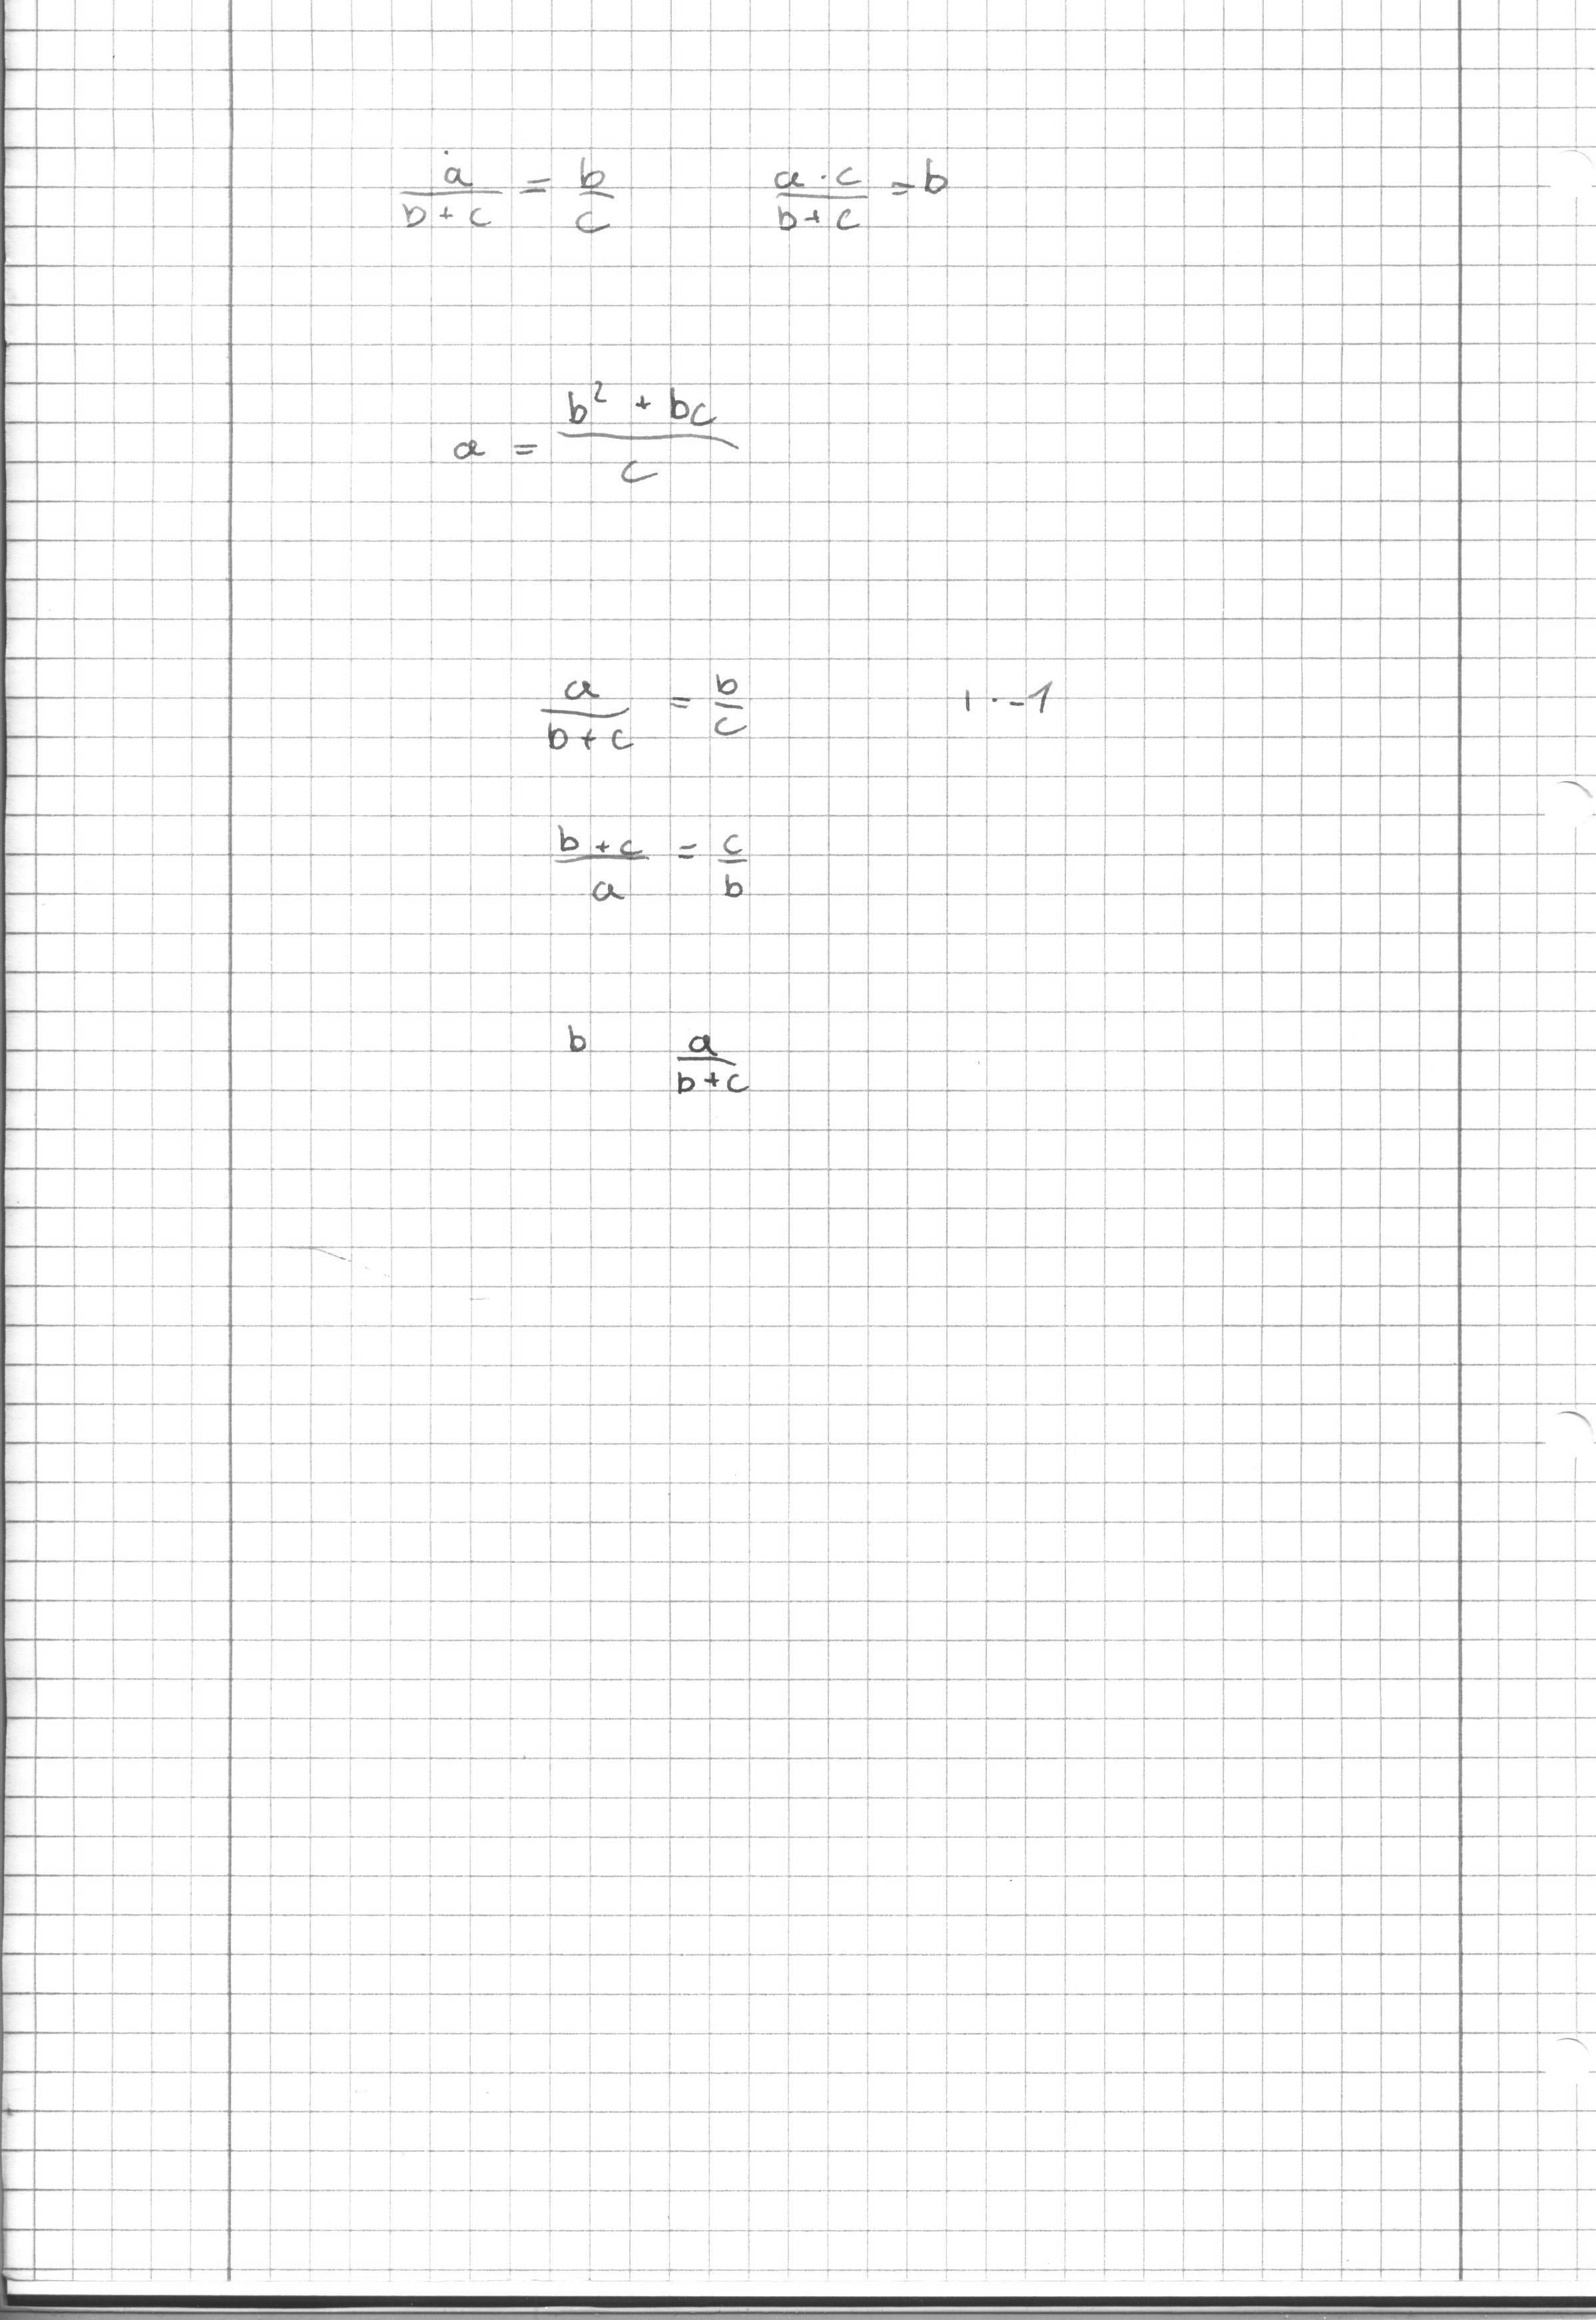 a/(b+c) = b/c    (a·c)/(b+c) = b
a = (b² + bc)/c
a/(b+c) = b/c    | · -1
(b+c)/a = c/b
b    a/(b+c)